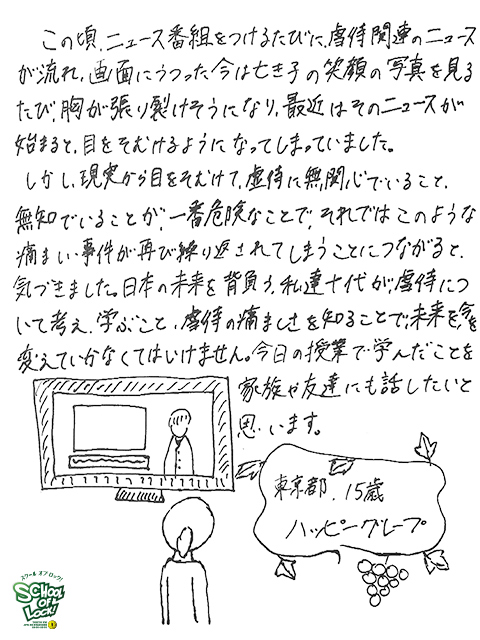 この頃、ニュース番組をつけるたびに、虐待関連のニュース
が流れ、画面にうつった今は亡き子の笑顔の写真を見る
たび、胸が張り裂けそうになり、最近はそのニュースが
始まると、目をそむけるようになってしまっていました。
しかし、現実から目をそむけて、虐待に無関心でいること、
無知でいることが、一番危険なことで、それではこのような
痛ましい事件が再び繰り返されてしまうことにつながると、
気づきました。日本の未来を背負う、私達十代が、虐待につ
いて考え、学ぶこと、虐待の痛ましさを知ることで、未来を、今を
変えていかなくてはいけません。今日の授業で学んだことを
家族や友達にも話したいと
思います。
東京都、15歳
ハッピーグレープ
スクール オブ ロック!
SCHOOL
OF
LOCK!